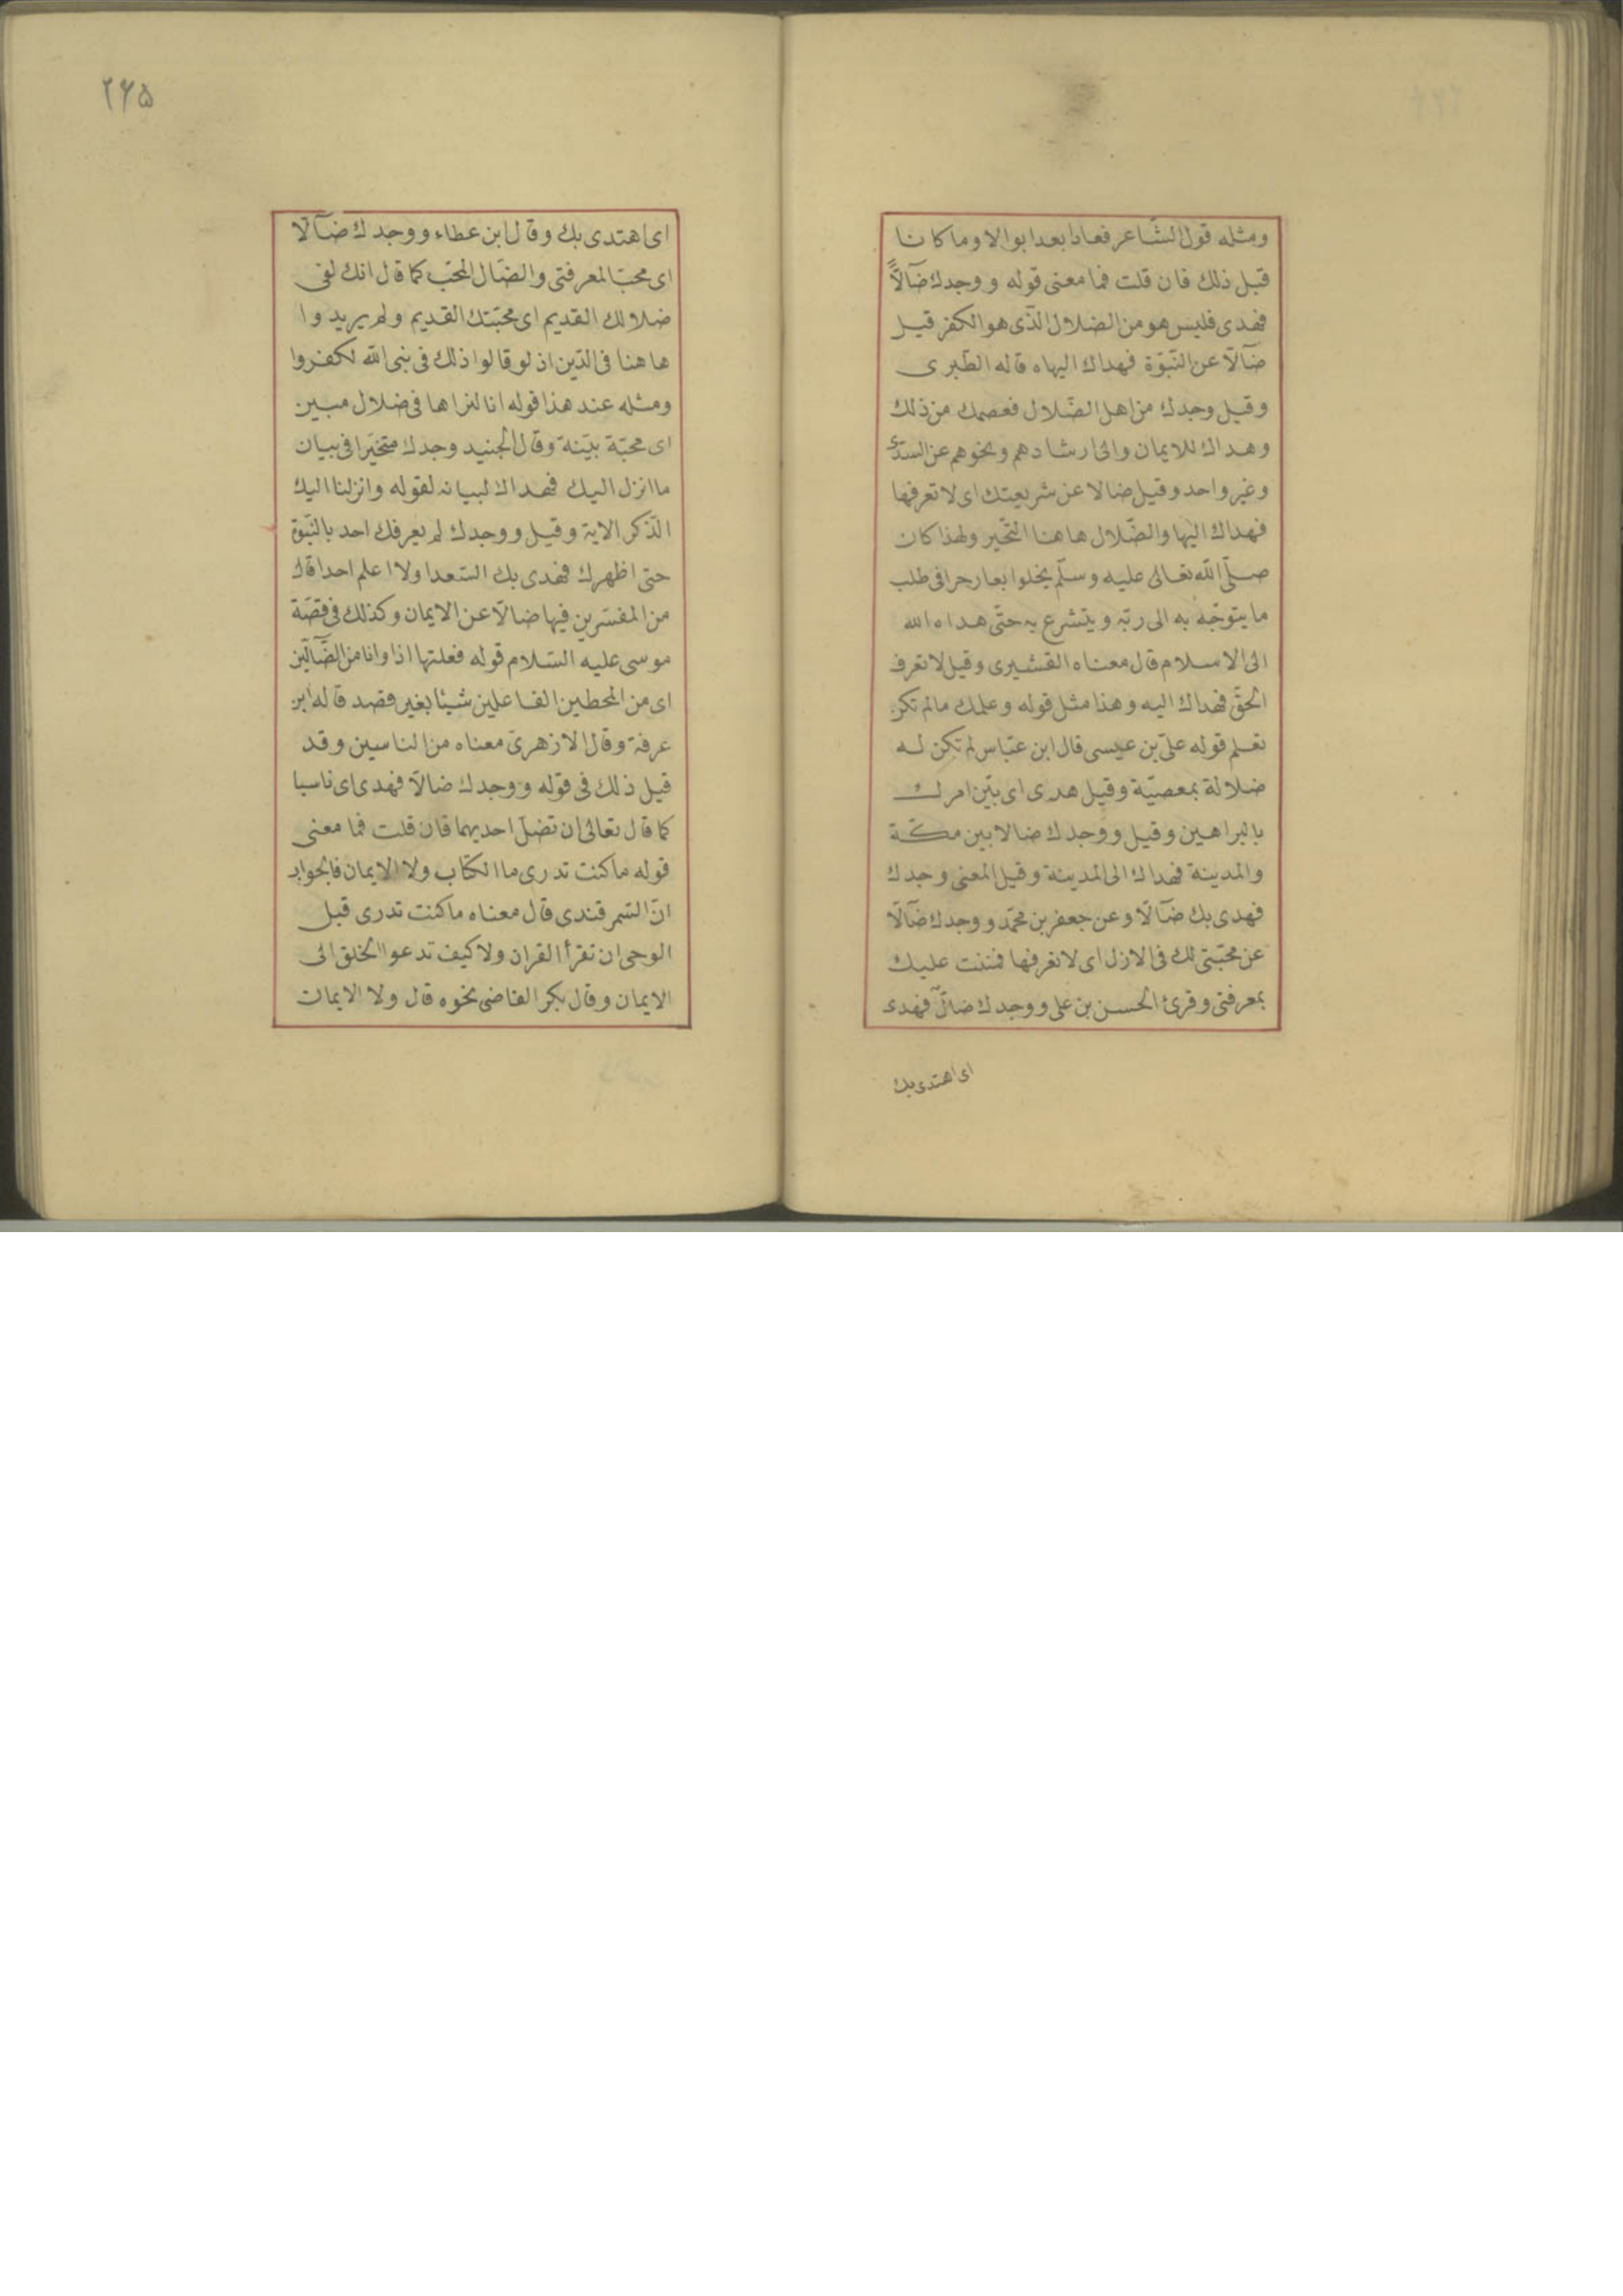 ومثله قول الشّاعر فعادا بعدا بوالا وما كانا
قبل ذلك فان قلت فما معنى قوله ووجدك ضآلاًّ
فهدى فليس هو من الضلال الّذى هو الكفر قيل
ضآلاّ عن النّبوّة فهداك اليهاه قاله الطّبرى
وقيل وجدك من اهل الضّلال فعصمك من ذلك
وهداك للايمان والى ارشادهم ونحوهم عن السدّى
وغير واحد وقيل ضالا عن شريعتك اى لا تعرفها
فهداك اليها والضّلال هاهنا التّحير ولهذا كان
صلّى الله تعالى عليه وسلّم يخلوا بعار حرا فى طلب
ما يتوجّه به الى ربّه ويتشرع به حتّى هداه الله
الى الاسلام قال معناه القشيرى وقيل لا تعرف
الحقّ فهداك اليه وهذا مثل قوله وعلمك مالم تكن
تعلم قوله علىّ بن عيسى قال ابن عبّاس لم تكن له
ضلالة بمعصيّة وقيل هدى اى بيّن امرك
بالبراهين وقيل ووجدك ضالا بين مكّة
والمدينة فهداك الى المدينة وقيل المعنى وجدك
فهدى بك ضآلاّ وعن جعفر بن محمّد ووجدك ضآلاّ
عن محبّتى لك فى الازل اى لا تعرفها فمننت عليك
بمعرفتى وقرئ الحسن بن على ووجدك ضالّ فهدى
اى اهتدى بك
٢٦٥
اى اهتدى بك وقال ابن عطاء ووجدك ضآلاّ
اى محبّا لمعرفتى والضّال المحبّ كما قال انك لفى
ضلالك القديم اى محبّتك القديم ولم يريدوا
هاهنا فى الدّين اذ لو قالوا ذلك فى نبى الله لكفروا
ومثله عند هذا قوله انا لنراها فى ضلال مبين
اى محبّة بيّنة وقال الجنيد وجدك متحيّرا فى بيان
ما انزل اليك فهداك لبيانه لقوله وانزلنا اليك
الذّكر الاية وقيل ووجدك لم يعرفك احد بالنّبوّة
حتى اظهرك فهدى بك السّعدا ولا اعلم احدا قال
من المفسّرين فيها ضالاّ عن الايمان وكذلك فى قصّة
موسى عليه السّلام قوله فعلتها اذا وانا من الضّآلّين
اى من المحطين الفاعلين شيئا بغير قصد قاله ابن
عرفة وقال الازهرىّ معناه من الناسين وقد
قيل ذلك فى قوله ووجدك ضالاّ فهدى اى ناسيا
كما قال تعالى ان تضلّ احديهما فان قلت فما معنى
قوله ما كنت تدرى ما الكتاب ولا الايمان فالجواب
انّ السّمرقندى قال معناه ما كنت تدرى قبل
الوحى ان تقرأ القران ولا كيف تدعوا الخلق الى
الايمان وقال بكر القاضى نحوه قال ولا الايمان